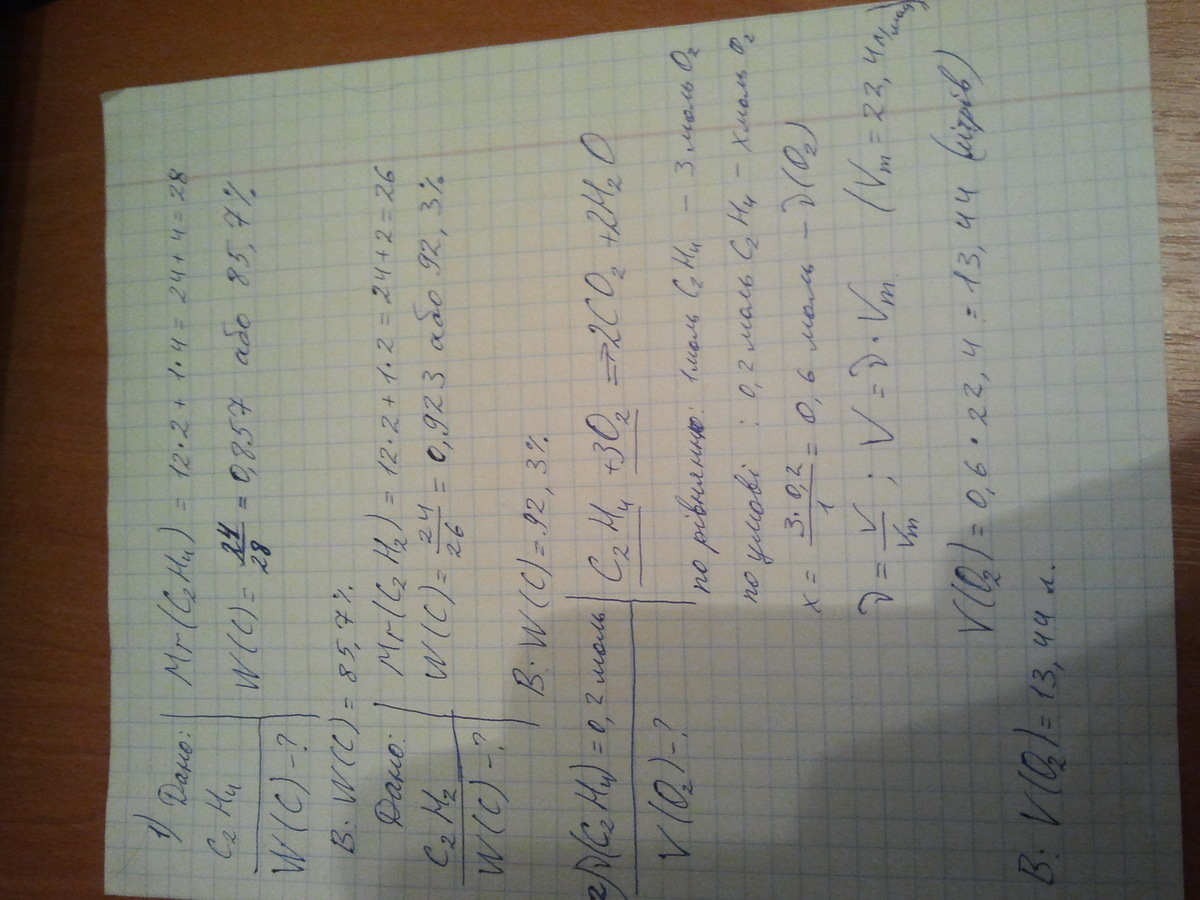 1) Дано:
C₂H₄
W(C) - ?
Mr(C₂H₄) = 12·2 + 1·4 = 24+4 = 28
W(C) = 24/28 = 0,857 або 85,7%
В: W(C) = 85,7%
Дано:
C₂H₂
W(C) - ?
Mr(C₂H₂) = 12·2 + 1·2 = 24+2 = 26
W(C) = 24/26 = 0,923 або 92,3%
В: W(C) = 92,3%
2) ν(C₂H₄) = 0,2 моль
V(O₂) - ?
C₂H₄ + 3O₂ = 2CO₂ + 2H₂O
по рівнянню: 1 моль C₂H₄ – 3 моль O₂
по умові : 0,2 моль C₂H₄ – x моль O₂
x = 3·0,2/1 = 0,6 моль – ν(O₂)
ν = V/Vm ; V = ν · Vm (Vm = 22,4 л/моль)
V(O₂) = 0,6 · 22,4 = 13,44 (літрів)
В: V(O₂) = 13,44 л.